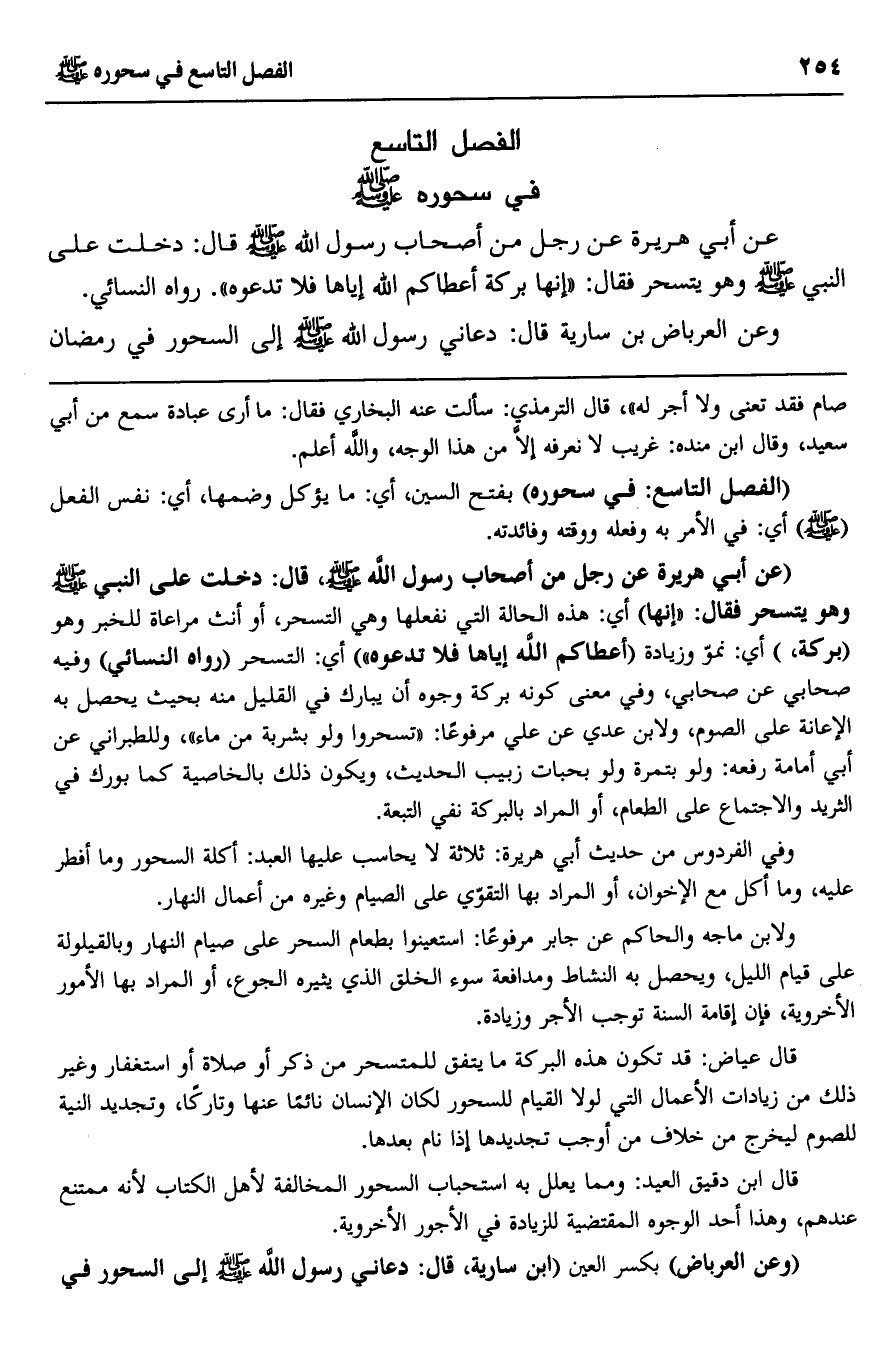 ٢٥٤ الفصل التاسع في سحوره ﷺ
الفصل التاسع
في سحوره ﷺ
عن أبي هريرة عن رجل من أصحاب رسول الله ﷺ قال: دخلت على
النبي ﷺ وهو يتسحر فقال: «إنها بركة أعطاكم الله إياها فلا تدعوه». رواه النسائي.
وعن العرباض بن سارية قال: دعاني رسول الله ﷺ إلى السحور في رمضان
صام فقد تعنى ولا أجر له»، قال الترمذي: سألت عنه البخاري فقال: ما أرى عبادة سمع من أبي
سعيد، وقال ابن منده: غريب لا نعرفه إلاَّ من هذا الوجه، واللَّه أعلم.
(الفصل التاسع: في سحوره) بفتح السين، أي: ما يؤكل وضمها، أي: نفس الفعل
(ﷺ) أي: في الأمر به وفعله ووقته وفائدته.
(عن أبي هريرة عن رجل من أصحاب رسول اللَّه ﷺ، قال: دخلت على النبي ﷺ
وهو يتسحر فقال: «إنها) أي: هذه الحالة التي نفعلها وهي التسحر، أو أنث مراعاة للخبر وهو
(بركة، ) أي: نموّ وزيادة (أعطاكم اللَّه إياها فلا تدعوه») أي: التسحر (رواه النسائي) وفيه
صحابي عن صحابي، وفي معنى كونه بركة وجوه أن يبارك في القليل منه بحيث يحصل به
الإعانة على الصوم، ولابن عدي عن علي مرفوعًا: «تسحروا ولو بشربة من ماء»، وللطبراني عن
أبي أمامة رفعه: ولو بتمرة ولو بحبات زبيب الحديث، ويكون ذلك بالخاصية كما بورك في
الثريد والاجتماع على الطعام، أو المراد بالبركة نفي التبعة.
وفي الفردوس من حديث أبي هريرة: ثلاثة لا يحاسب عليها العبد: أكلة السحور وما أفطر
عليه، وما أكل مع الإخوان، أو المراد بها التقوّي على الصيام وغيره من أعمال النهار.
ولابن ماجه والحاكم عن جابر مرفوعًا: استعينوا بطعام السحر على صيام النهار وبالقيلولة
على قيام الليل، ويحصل به النشاط ومدافعة سوء الخلق الذي يثيره الجوع، أو المراد بها الأمور
الأخروية، فإن إقامة السنة توجب الأجر وزيادة.
قال عياض: قد تكون هذه البركة ما يتفق للمتسحر من ذكر أو صلاة أو استغفار وغير
ذلك من زيادات الأعمال التي لولا القيام للسحور لكان الإنسان نائمًا عنها وتاركًا، وتجديد النية
للصوم ليخرج من خلاف من أوجب تجديدها إذا نام بعدها.
قال ابن دقيق العيد: ومما يعلل به استحباب السحور المخالفة لأهل الكتاب لأنه ممتنع
عندهم، وهذا أحد الوجوه المقتضية للزيادة في الأجور الأخروية.
(وعن العرباض) بكسر العين (ابن سارية، قال: دعاني رسول اللَّه ﷺ إلى السحور في